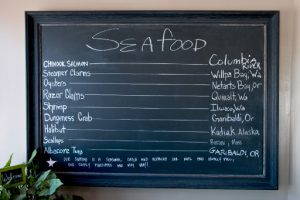 SEAFOOD
CHINOOK SALMON Columbia RIVER
Steamer Clams Willpa Bay, Wa
Oysters Netarts Bay, Or
Razor Clams Quinalt, Wa
Shrimp Ilwaco, Wa
Dungeness Crab Garibaldi, Or
Halibut Kodiak Alaska
Scallops Boston, Mass
Albacore Tuna GARIBALDI, OR
OUR SEAFOOD IS SEASONAL
OUR SUPPLY